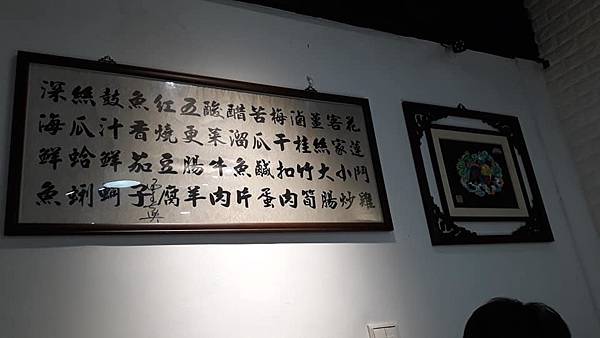 花蓮門雞
客家小炒
薑絲大腸
滷桂竹筍
梅干扣肉
苦瓜鹹蛋
醋溜魚片
酸菜牛肉
五更腸羊
紅燒豆腐
魚香茄子
鼓汁鮮蚵
絲瓜蛤蜊
深海鮮魚